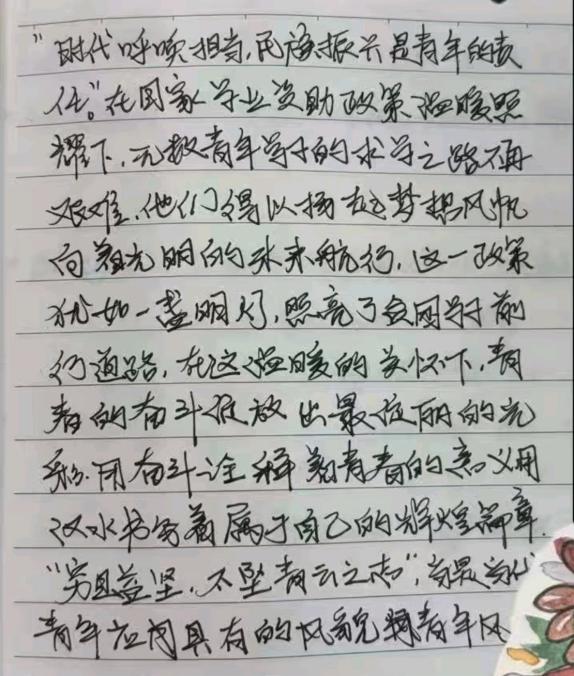 "时代呼唤担当,民族振兴是青年的责
任。"在国家学业资助政策温暖照
耀下,无数青年学子的求学之路不再
艰难,他们得以扬起梦想风帆
向着光明的未来航行,这一政策
犹如一盏明灯,照亮了贫困学子前
行道路,在这温暖的关怀下,青
春的奋斗绽放出最绚丽的光
彩.用奋斗诠释着青春的意义用
汗水书写着属于自己的辉煌篇章.
"穷且益坚,不坠青云之志",就是当代
青年应当具有的风貌 青年风